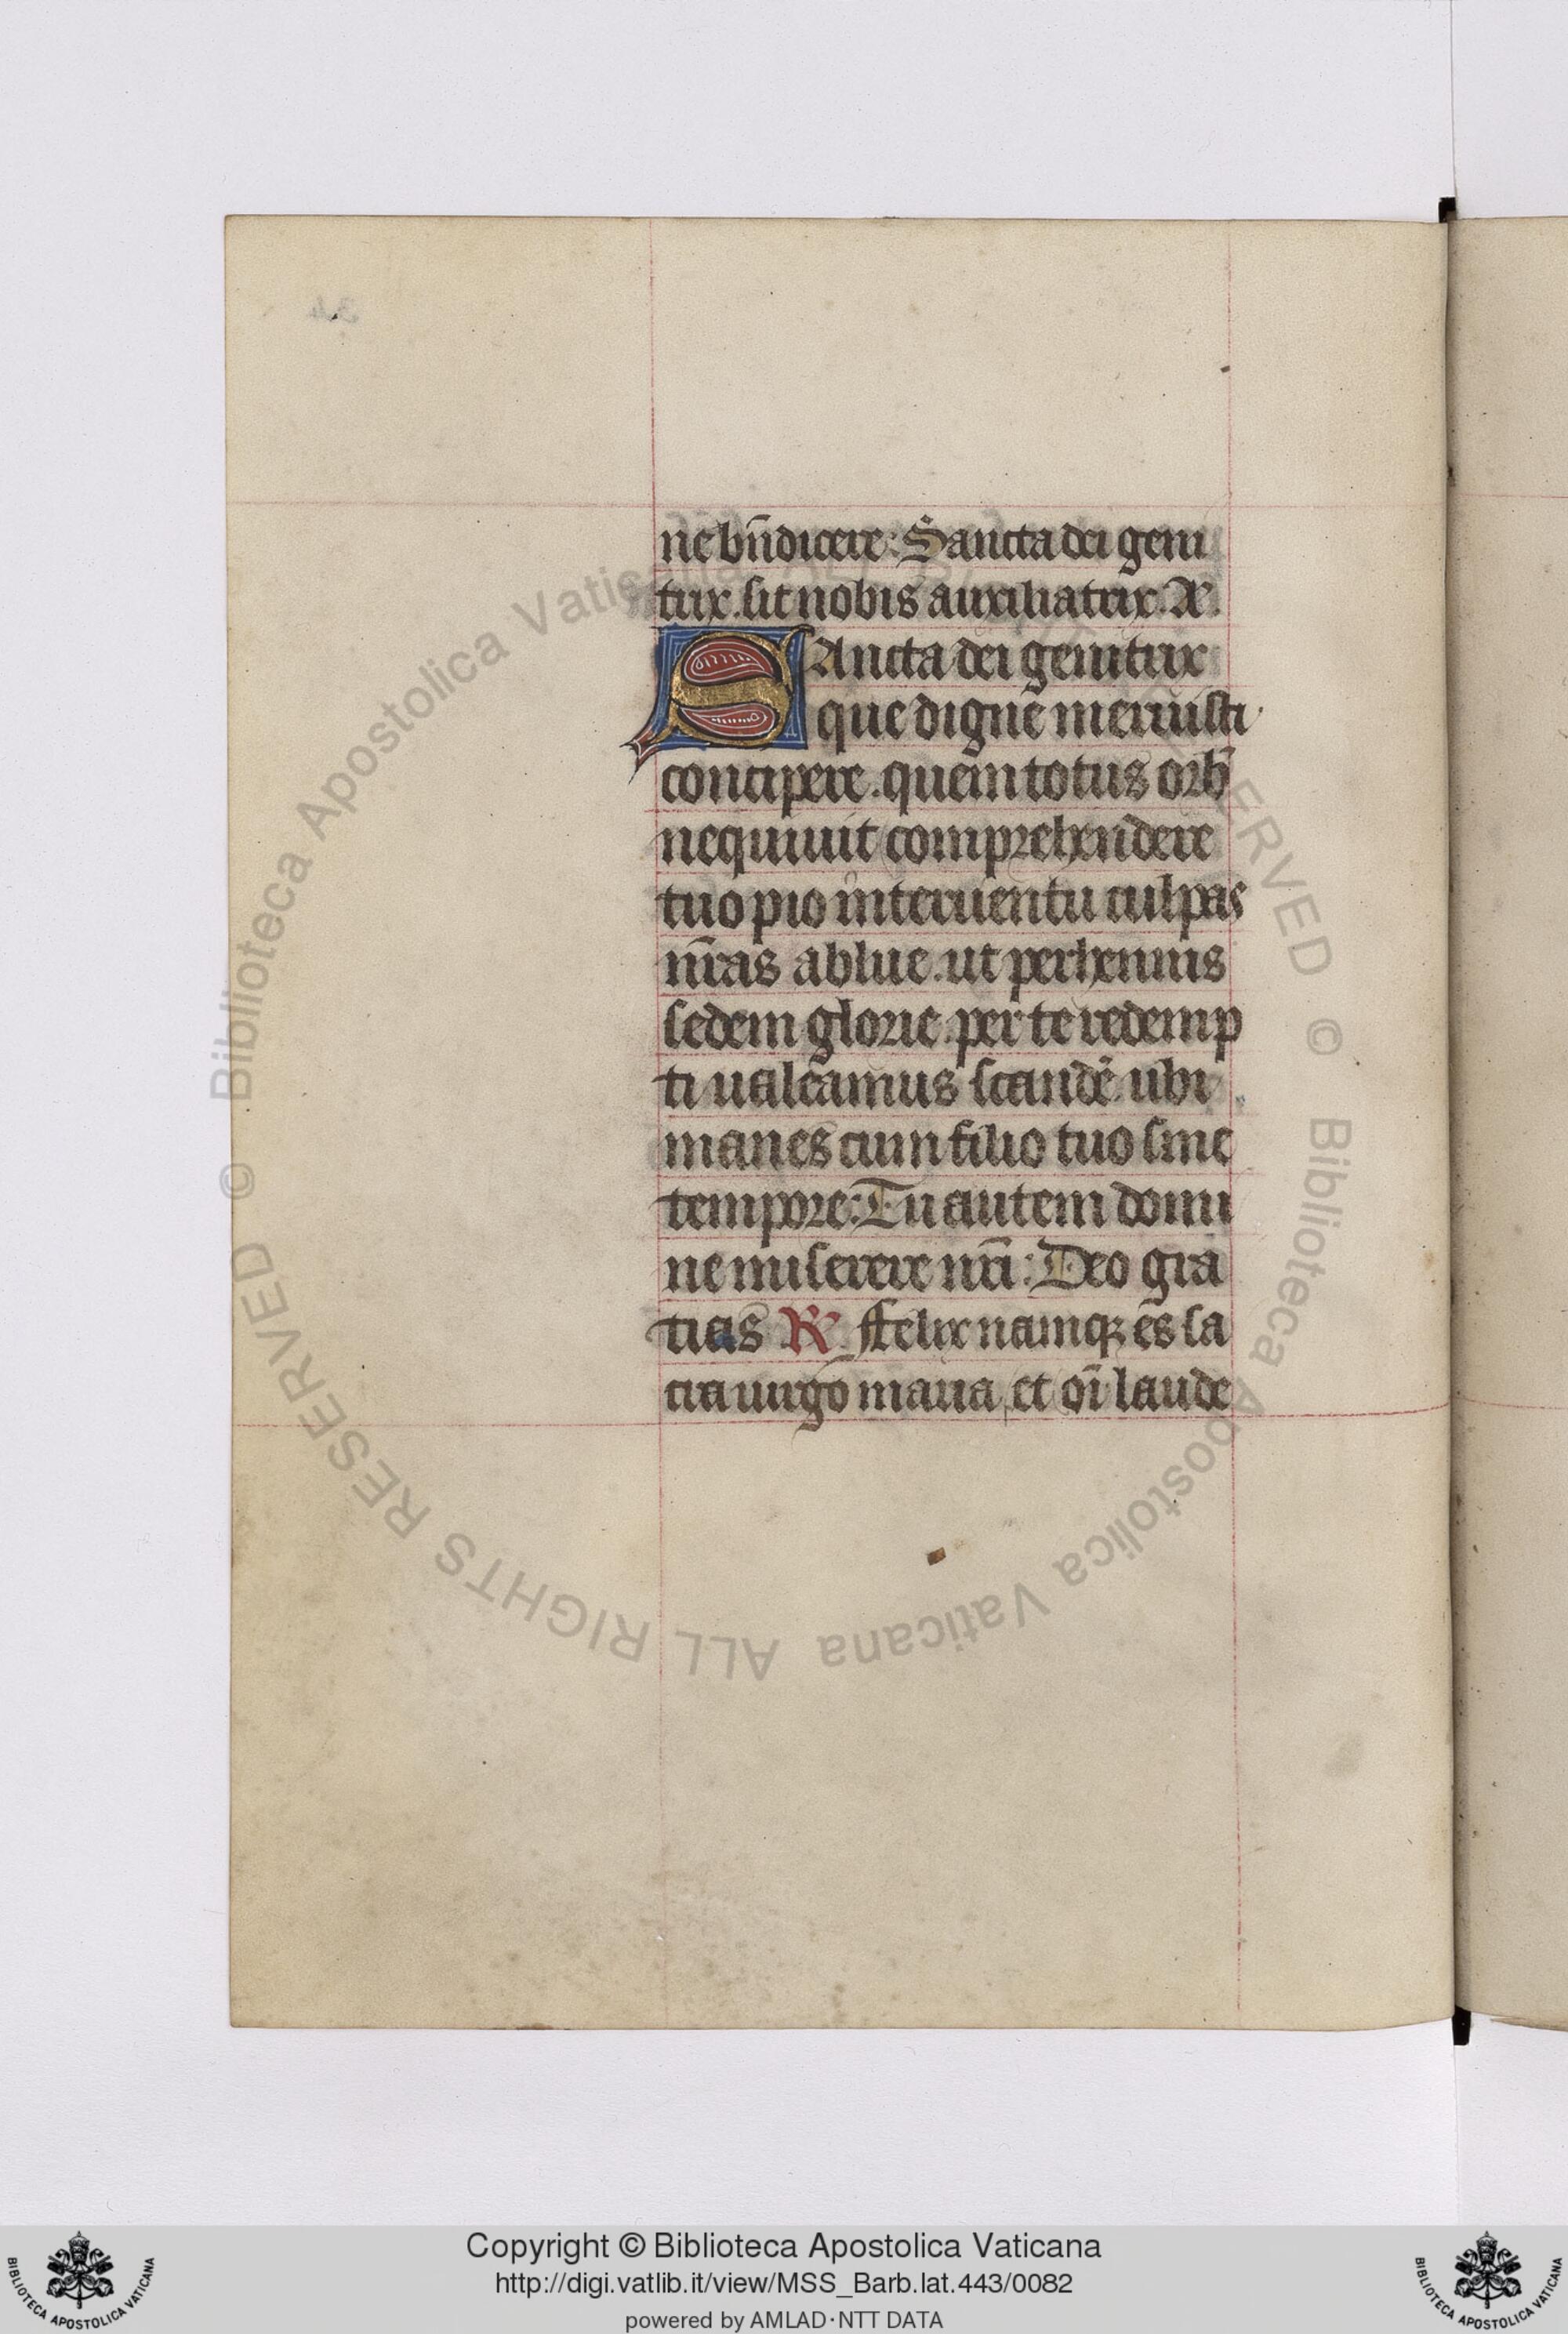 ne bn̄dicere: Sancta dei geni
trix. sit nobis auxiliatrix. Æ.
SAncta dei genitrix
que digne meruisti
concipere. quem totus orb̄
nequiuit comprehendere
tuo pio interuentu culpas
nr̄as ablue. ut perhennis
sedem glorie. per te redemp
ti ualeamus scandē. ubi
manes cum filio tuo sine
tempore: Tu autem domi
ne miserere nr̄i: Deo gra
tias R̸. ffelix namqꝫ es sa
cra uirgo maria, et oı̄ laude
© Biblioteca Apostolica Vaticana ALL RIGHTS RESERVED © Biblioteca Apostolica Vaticana ALL RIGHTS RESERVED
Copyright © Biblioteca Apostolica Vaticana
http://digi.vatlib.it/view/MSS_Barb.lat.443/0082
powered by AMLAD·NTT DATA
BIBLIOTECA APOSTOLICA VATICANA
BIBLIOTECA APOSTOLICA VATICANA